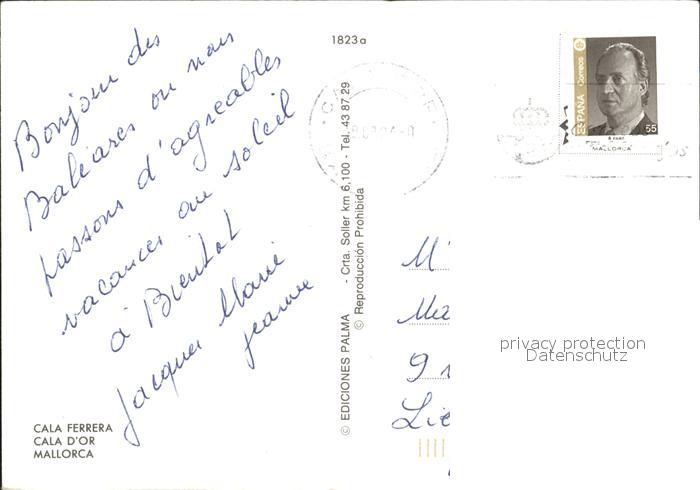 1823a
Bonjour des
Baléares ou nous
passons d'agréables
vacances au soleil
à Bientot
Jacques Marie
Jeanne
CALA FERRERA
CALA D'OR
MALLORCA
© EDICIONES PALMA - Crta. Soller km 6,100 - Tel. 43 87 29
© Reproducción Prohibida
Correos
ESPAÑA
55
MALLORCA
M
Ma
9
Lie
privacy protection
Datenschutz